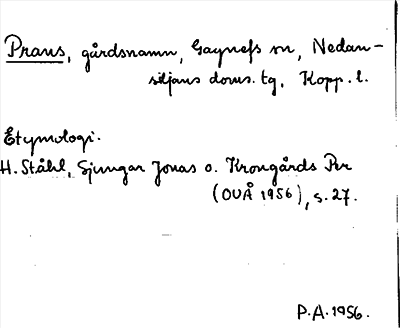 Prans, gårdsnamn, Gagnefs sn, Nedan-
siljans doms. tg, Kopp. l.
Etymologi.
H. Ståhl, Sjungar Jonas o. Krongårds Per
(OUÅ 1956), s. 27.
P.A. 1956.